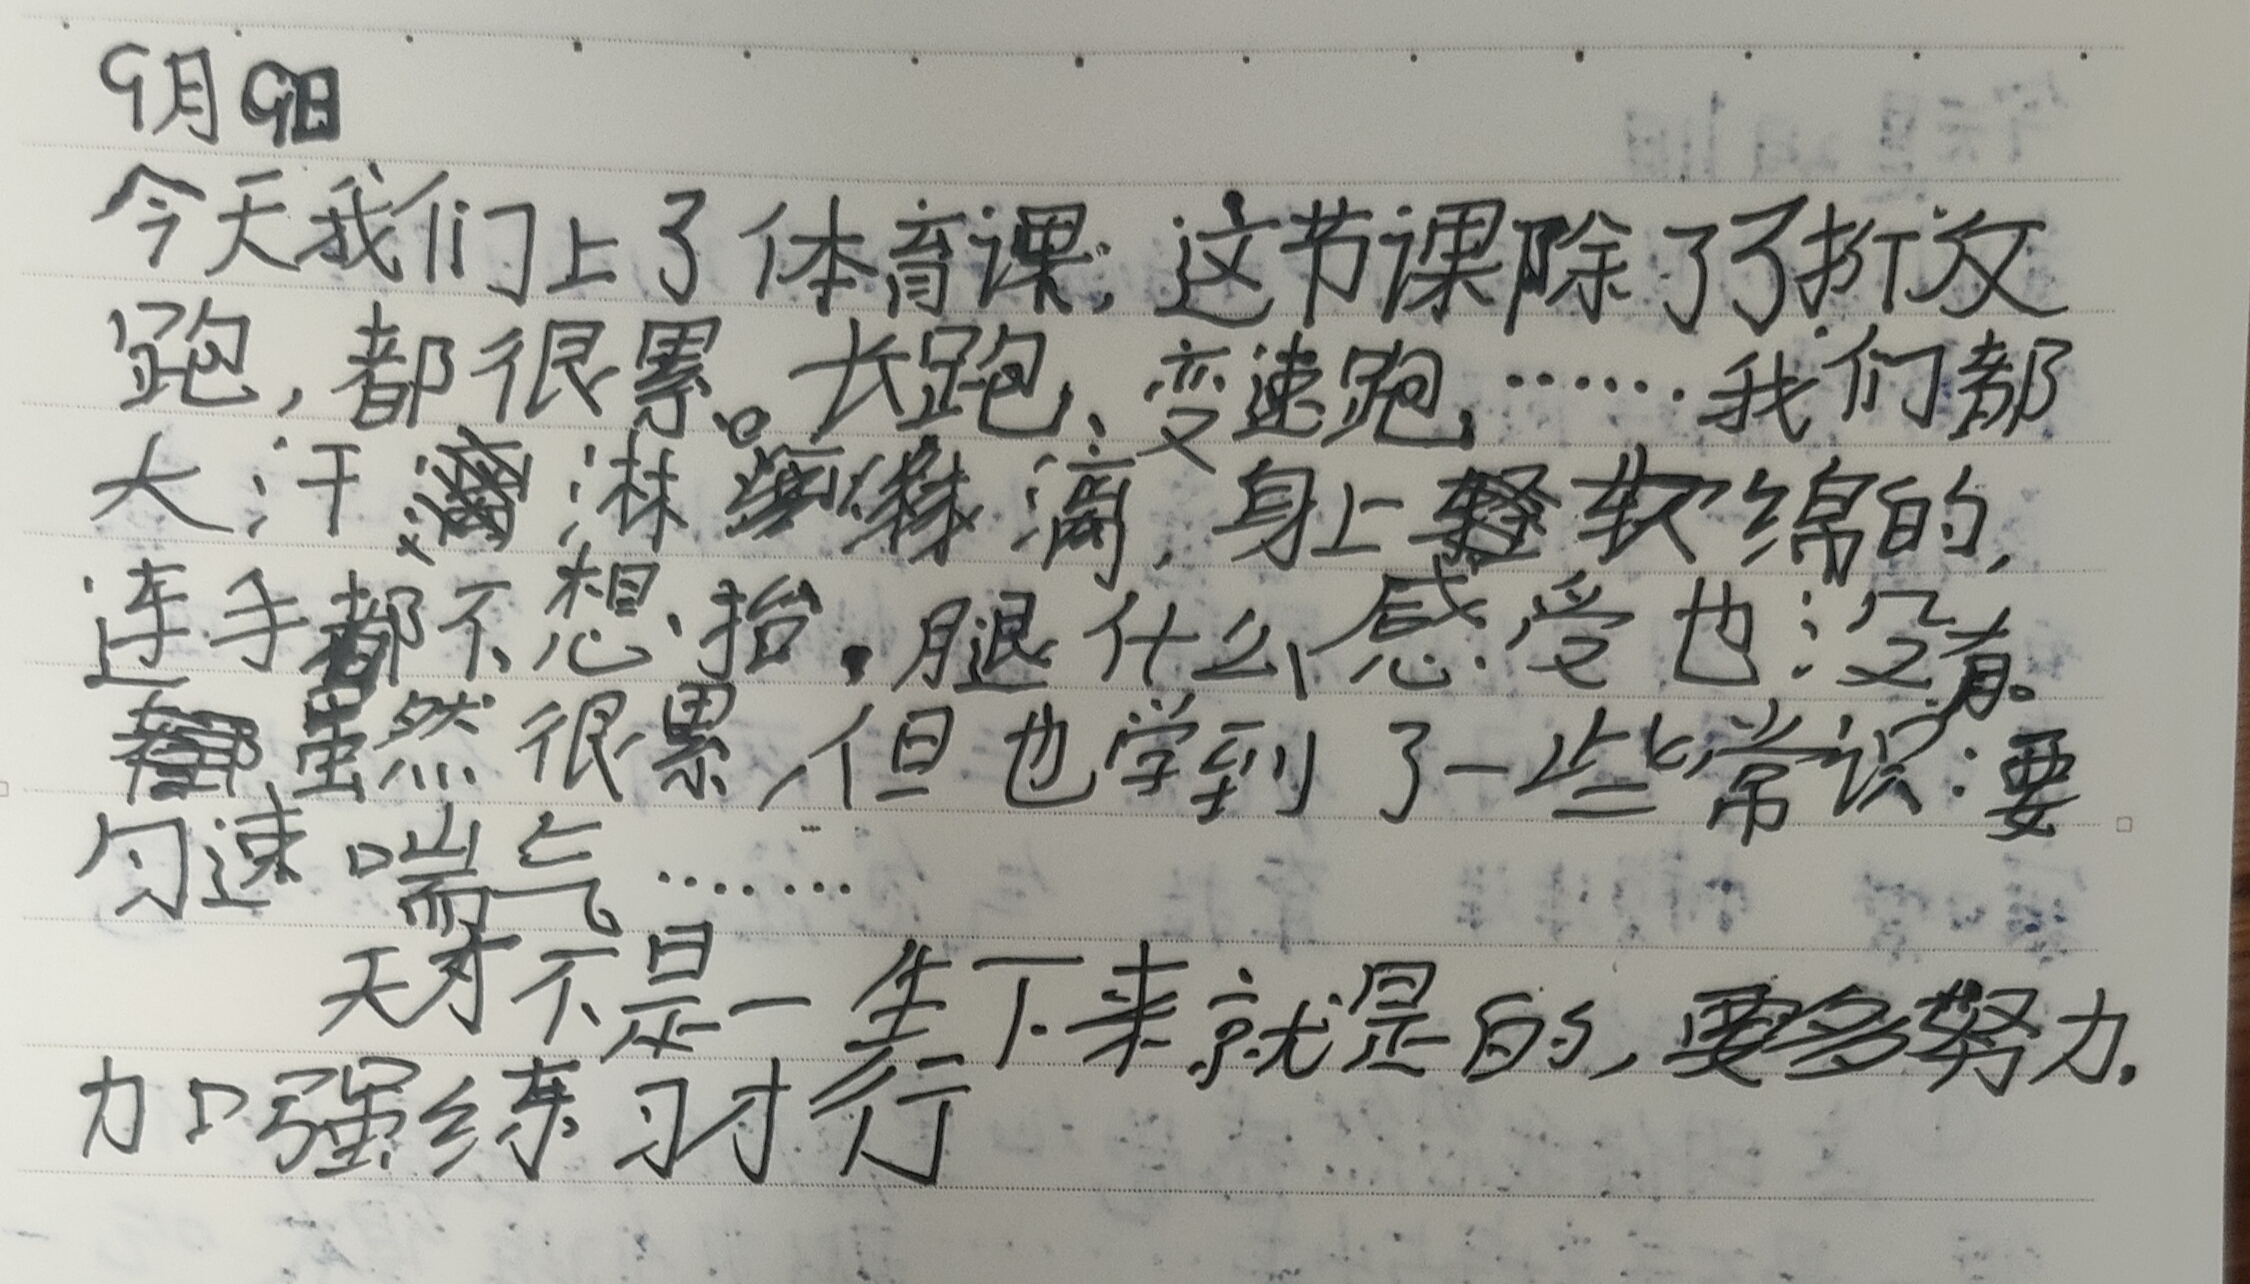 9月9日
今天我们上了体育课,这节课除了了折放
跑,都很累。长跑、变速跑、……我们都
大汗淋漓,身上软绵的,
连手都不想抬。腿什么感受也没有。
虽然很累,但也学到了一些常识:要
匀速喘气……
天才不是一生下来就是的,要多努力.
加强练习才行